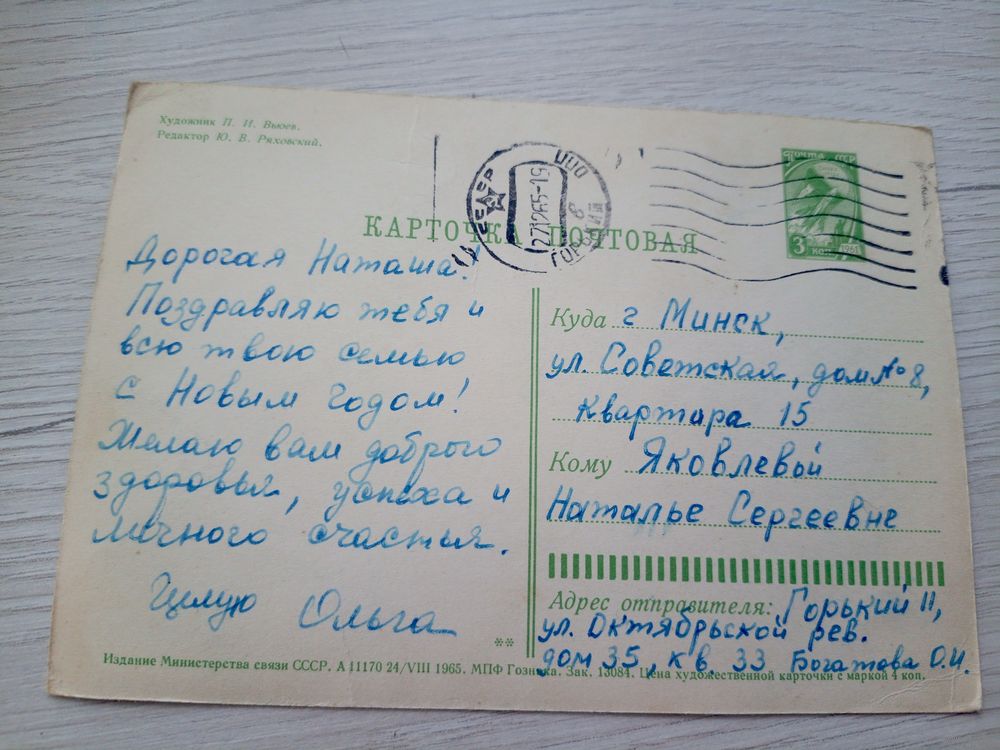 Художник П. И. Вьюев.
Редактор Ю. В. Ряховский.
КАРТОЧКА ПОЧТОВАЯ
ПОЧТА СССР
3 коп. 1961
РСФСР
ГОРЬКИЙ 8
271265-19
Дорогая Наташа!
Поздравляю тебя и
всю твою семью
с Новым годом!
Желаю вам доброго
здоровья, успеха и
личного счастья.
Целую Ольга
Куда г Минск,
ул. Советская, дом № 8,
квартира 15
Кому Яковлевой
Наталье Сергеевне
Адрес отправителя: Горький 11,
ул. Октябрьской рев.
дом 35, кв. 33 Богатова О.И.
Издание Министерства связи СССР. А 11170 24/VIII 1965. МПФ Гознака. Зак. 13084. Цена художественной карточки с маркой 4 коп.